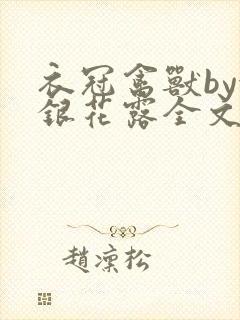 衣冠禽獸by
銀花露全文
趙凜松